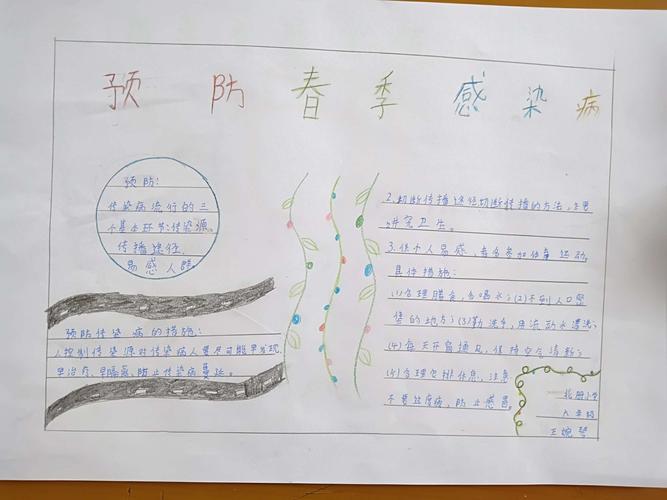 预防春季感染病
预防:
传染病流行的三
个基本环节:传染源。
传播途径.
易感人群
预防传染病的措施:
1.控制传染源对传染病人要尽可能早发现.
早治疗、早隔离,防止传染病蔓延。
2.切断传播途径切断传播的方法,主要
讲究卫生。
3.保个人易感,每多参加体育运动,
具体措施:
(1)合理膳食,多喝水;(2)不到人口密
集的地方;(3)勤洗手,用流动水清洗;
(4)每天开窗通风,保持空气清新;
(5)合理安排作息,注意
不要过度疲,防止感冒。
小学
六年级
王婉琴